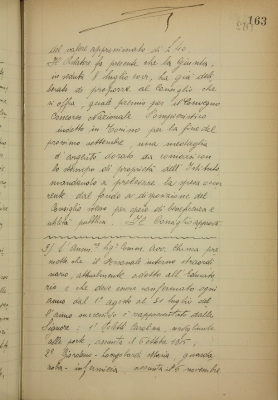 163
del valore approssimativo di L. 40.
Il Relatore fa presente che la Giunta,
in seduta 8 luglio 1911, ha già deli
berato di proporre al Consiglio che
si offra, quale premio per il Convegno
Concorso Nazionale
indetto in Torino per la fine del
prossimo settembre, una medaglia
d'argento dorato da coniarsi con
lo stampo di proprietà dell'Istituto
mandando a prelevare la spesa occor
rente dal fondo a disposizione del
Consiglio stesso per opere di beneficenza e
utilità pubblica. Il Consiglio approva
mette che il Personale interno straordi
nario, attualmente addetto all'Educato
rio e che deve essere confermato ogni
anno dal 1° agosto al 31 luglio del
l'anno successivo è rappresentato dalle
Signore: 1° Carolina, sorvegliante
alla porta, assunta il 6 ottobre 1905,
2° Maria, guarda
roba-infermiera, assunta il 6 novembre